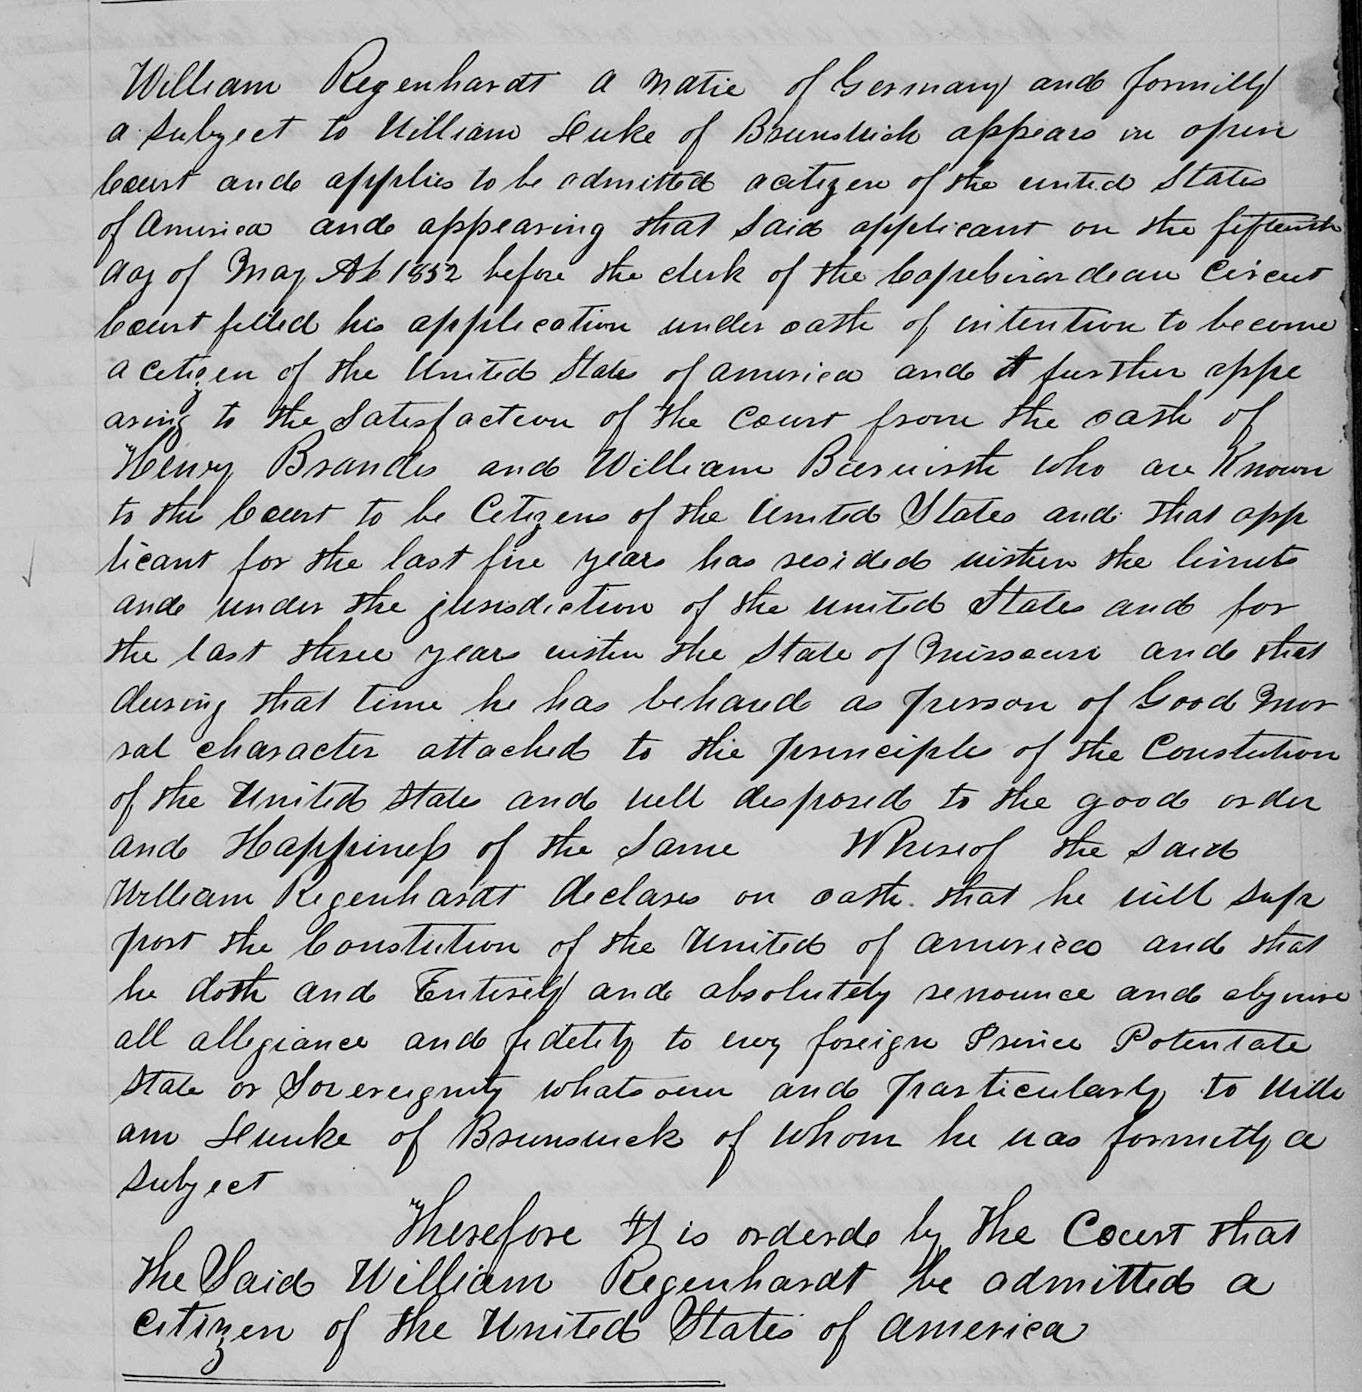 William Regenhardt a natie of Germany and formilly
a subject to William Duke of Brunswick appears in open
Court and applies to be admitted a citizen of the united States
of America and appearing that Said applicant on the fifteenth
day of May AD 1852 before the clerk of the Capebirardeau Circut
Court filled his application under oath of intention to become
a citizen of the United States of america and it further appe
aring to the Satisfaction of the Court from the oath of
Henry Brandes and William who are Known
to the Court to be Citizens of the United States and that app
licant for the last five years has resided within the limits
and under the jurisdiction of the united States and for
the last three years within the State of Missouri and that
during that time he has behaved as person of Good mor
ral character attached to the principles of the Constution
of the United States and well disposed to the good order
and Happiness of the Same Whereof the Said
William Regenhardt declares on oath that he will sup
port the Constution of the United of america and that
he doth and Entirely and absolutely renounce and abjure
all allegiance and fidelity to evey foreign Prince Potentate
State or Sovereignty whatsoever and particularly to Willi
am Duuke of Brunswick of whom he was formelly a
Subject
Therefore It is orderde by the Court that
the Said William Regenhardt be admitted a
citizen of the United States of america